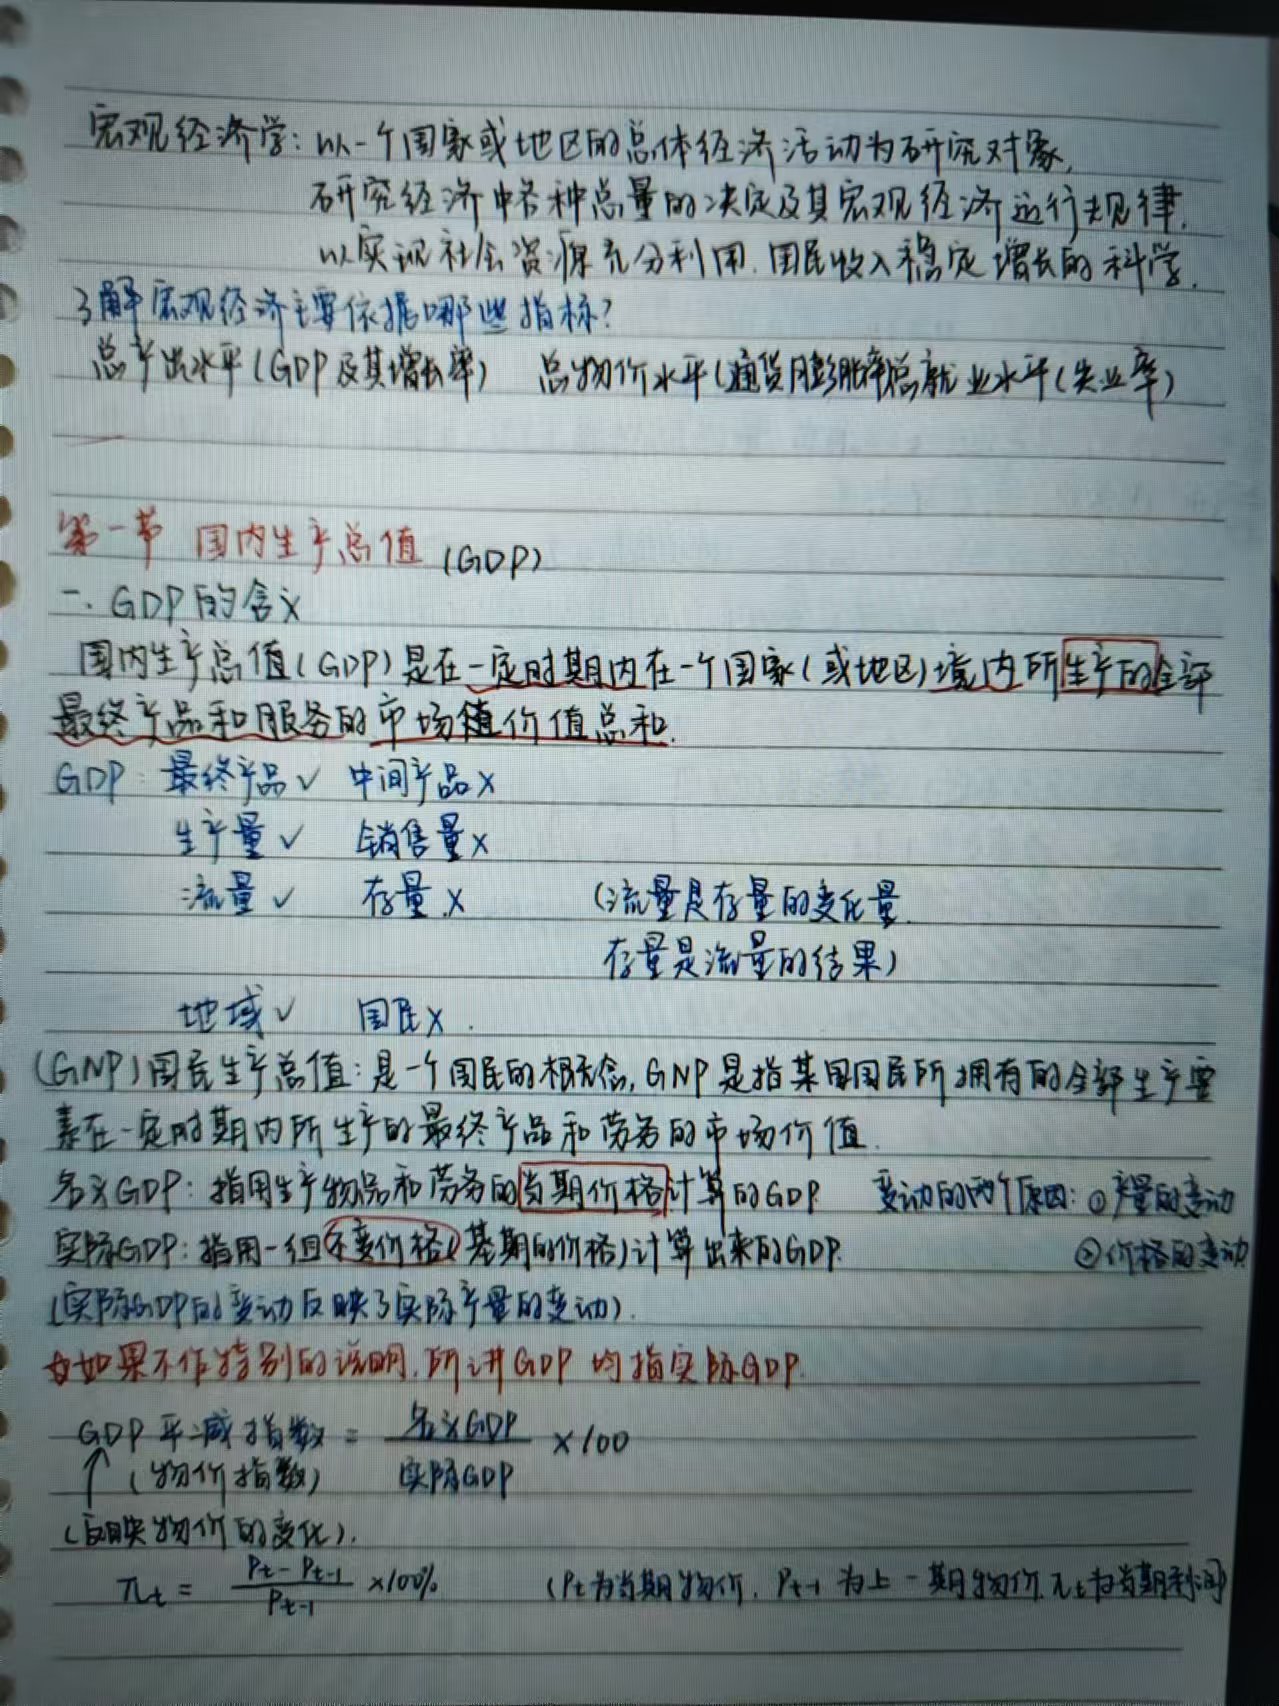 宏观经济学：以一个国家或地区的总体经济活动为研究对象，
研究经济中各种总量的决定及其宏观经济运行规律，
以实现社会资源充分利用、国民收入稳定增长的科学．
了解宏观经济主要依据哪些指标？
总产出水平(GDP及其增长率) 总物价水平(通货膨胀率总就业水平(失业率)
第一节 国内生产总值(GDP)
一．GDP的含义
国内生产总值(GDP)是在一定时期内在一个国家(或地区)境内所生产的全部
最终产品和服务的市场价值总和．
GDP：最终产品✓ 中间产品×
生产量✓ 销售量×
流量✓ 存量× (流量是存量的变化量．
存量是流量的结果)
地域✓ 国民×．
(GNP)国民生产总值：是一个国民的概念，GNP是指某国国民所拥有的全部生产要
素在一定时期内所生产的最终产品和劳务的市场价值．
名义GDP：指用生产物品和劳务的当期价格计算的GDP 变动的两个原因：①产量的变动
实际GDP：指用一组不变价格(基期的价格)计算出来的GDP． ②价格的变动
(实际GDP的变动反映了实际产量的变动)．
如果不作特别的说明，所讲GDP均指实际GDP．
GDP平减指数 = 名义GDP / 实际GDP ×100
(物价指数)
(反映物价的变化)．
πt = Pt-Pt-1 / Pt-1 ×100% (Pt为当期物价，Pt-1为上一期物价，πt为当期